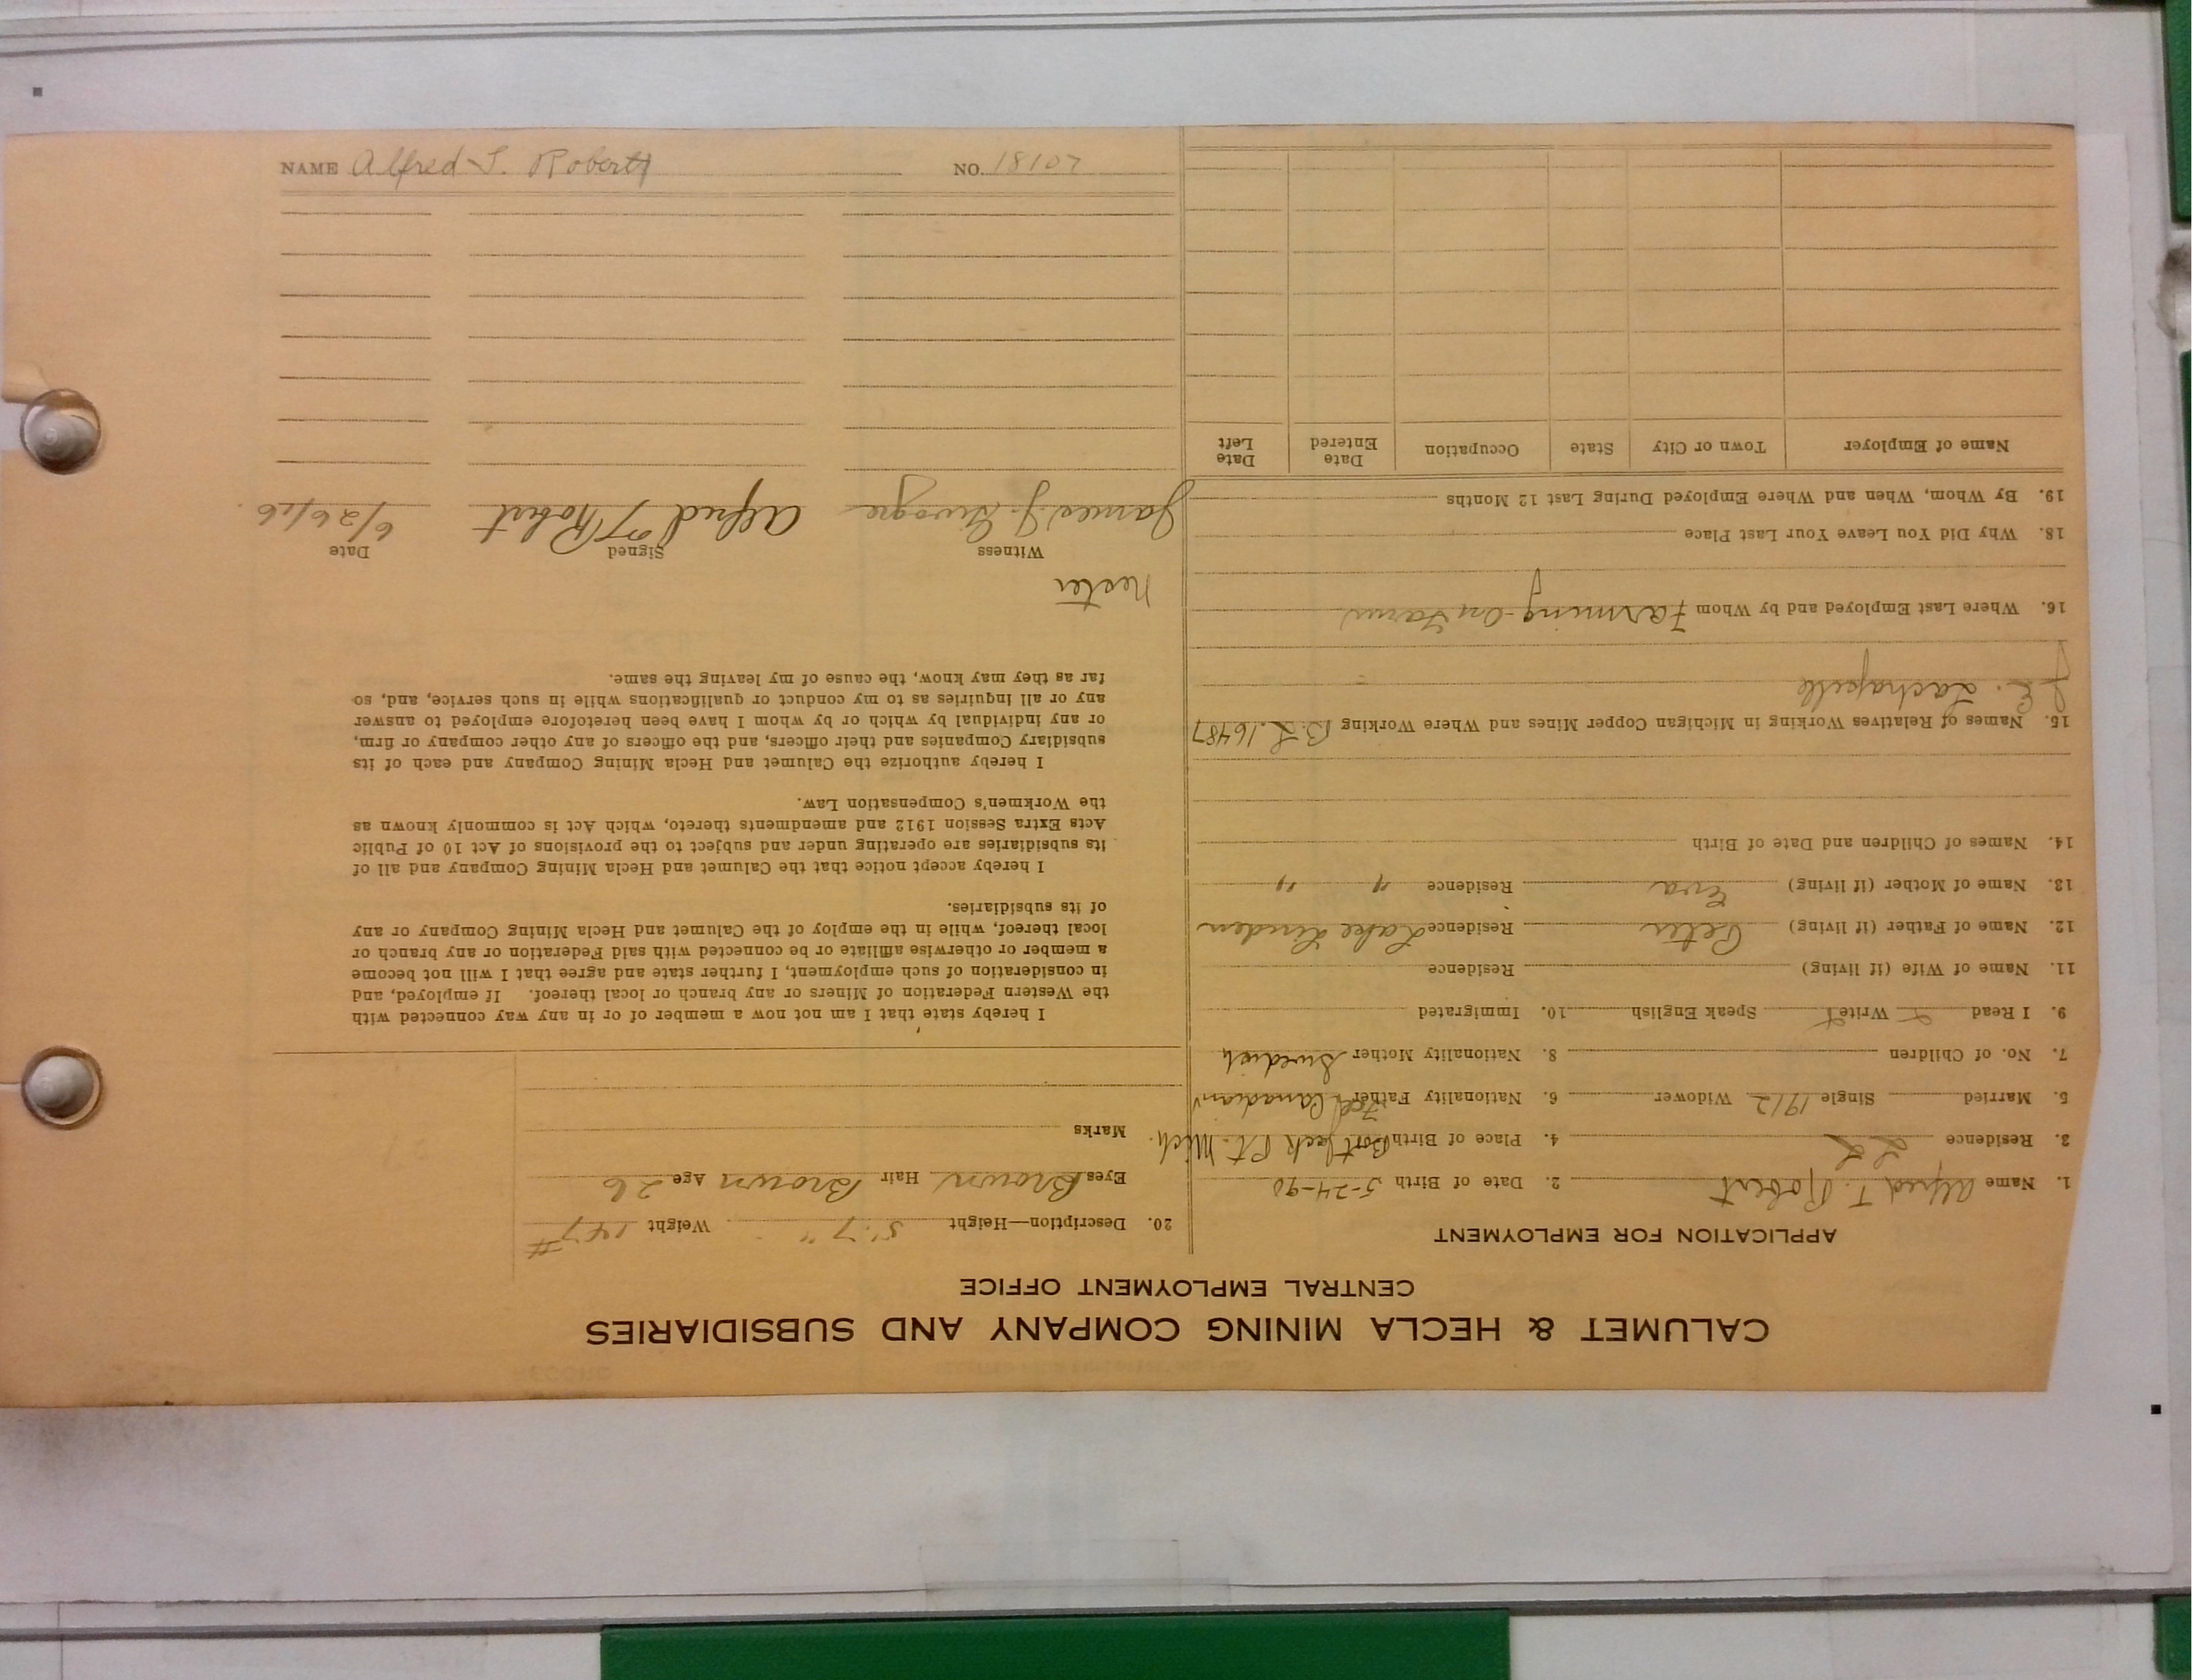 CALUMET & HECLA MINING COMPANY AND SUBSIDIARIES
CENTRAL EMPLOYMENT OFFICE
APPLICATION FOR EMPLOYMENT
1. Name Alfred T. Robert 2. Date of Birth 5-24-90
3. Residence L L 4. Place of Birth Jack Pt. Mich.
5. Married Single 1912 Widower 6. Nationality Father Canadian
7. No. of Children 8. Nationality Mother Swedish
9. I Read Write Speak English 10. Immigrated
11. Name of Wife (if living) Residence
12. Name of Father (if living) Peter Residence Lake Linden
13. Name of Mother (if living) Eva Residence " "
14. Names of Children and Date of Birth
15. Names of Relatives Working in Michigan Copper Mines and Where Working B.L. 16487
J.E. Lachapelle
16. Where Last Employed and by Whom Farming-On Farm
18. Why Did You Leave Your Last Place
19. By Whom, When and Where Employed During Last 12 Months
Name of Employer Town or City State Occupation Date Entered Date Left
20. Description—Height 5' 7" Weight 147#
Eyes Brown Hair Brown Age 26
Marks
I hereby state that I am not now a member of or in any way connected with
the Western Federation of Miners or any branch or local thereof. If employed, and
in consideration of such employment, I further state and agree that I will not become
a member or otherwise affiliate or be connected with said Federation or any branch or
local thereof, while in the employ of the Calumet and Hecla Mining Company or any
of its subsidiaries.
I hereby accept notice that the Calumet and Hecla Mining Company and all of
its subsidiaries are operating under and subject to the provisions of Act 10 of Public
Acts Extra Session 1912 and amendments thereto, which Act is commonly known as
the Workmen's Compensation Law.
I hereby authorize the Calumet and Hecla Mining Company and each of its
subsidiary Companies and their officers, and the officers of any other company or firm,
or any individual by which or by whom I have been heretofore employed to answer
any or all inquiries as to my conduct or qualifications while in such service, and, so
far as they may know, the cause of my leaving the same.
Nester
Witness Signed Date
James J. Alfred T Robert 6/26/16
NAME Alfred T. Robert NO. 18107